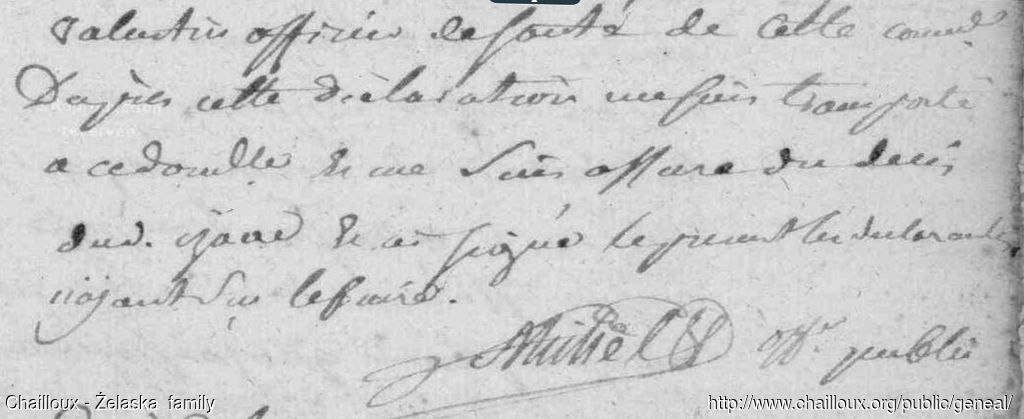 valentin officier de santé de cette comm.
Dapres cette declaration me suis transporté
a ce domille Et me suis assure du deces
dud. Et ai signé le present les declarants
n'ojant Su le faire.
off.r public
Chailloux - Želaska family
http://www.chailloux.org/public/geneal/